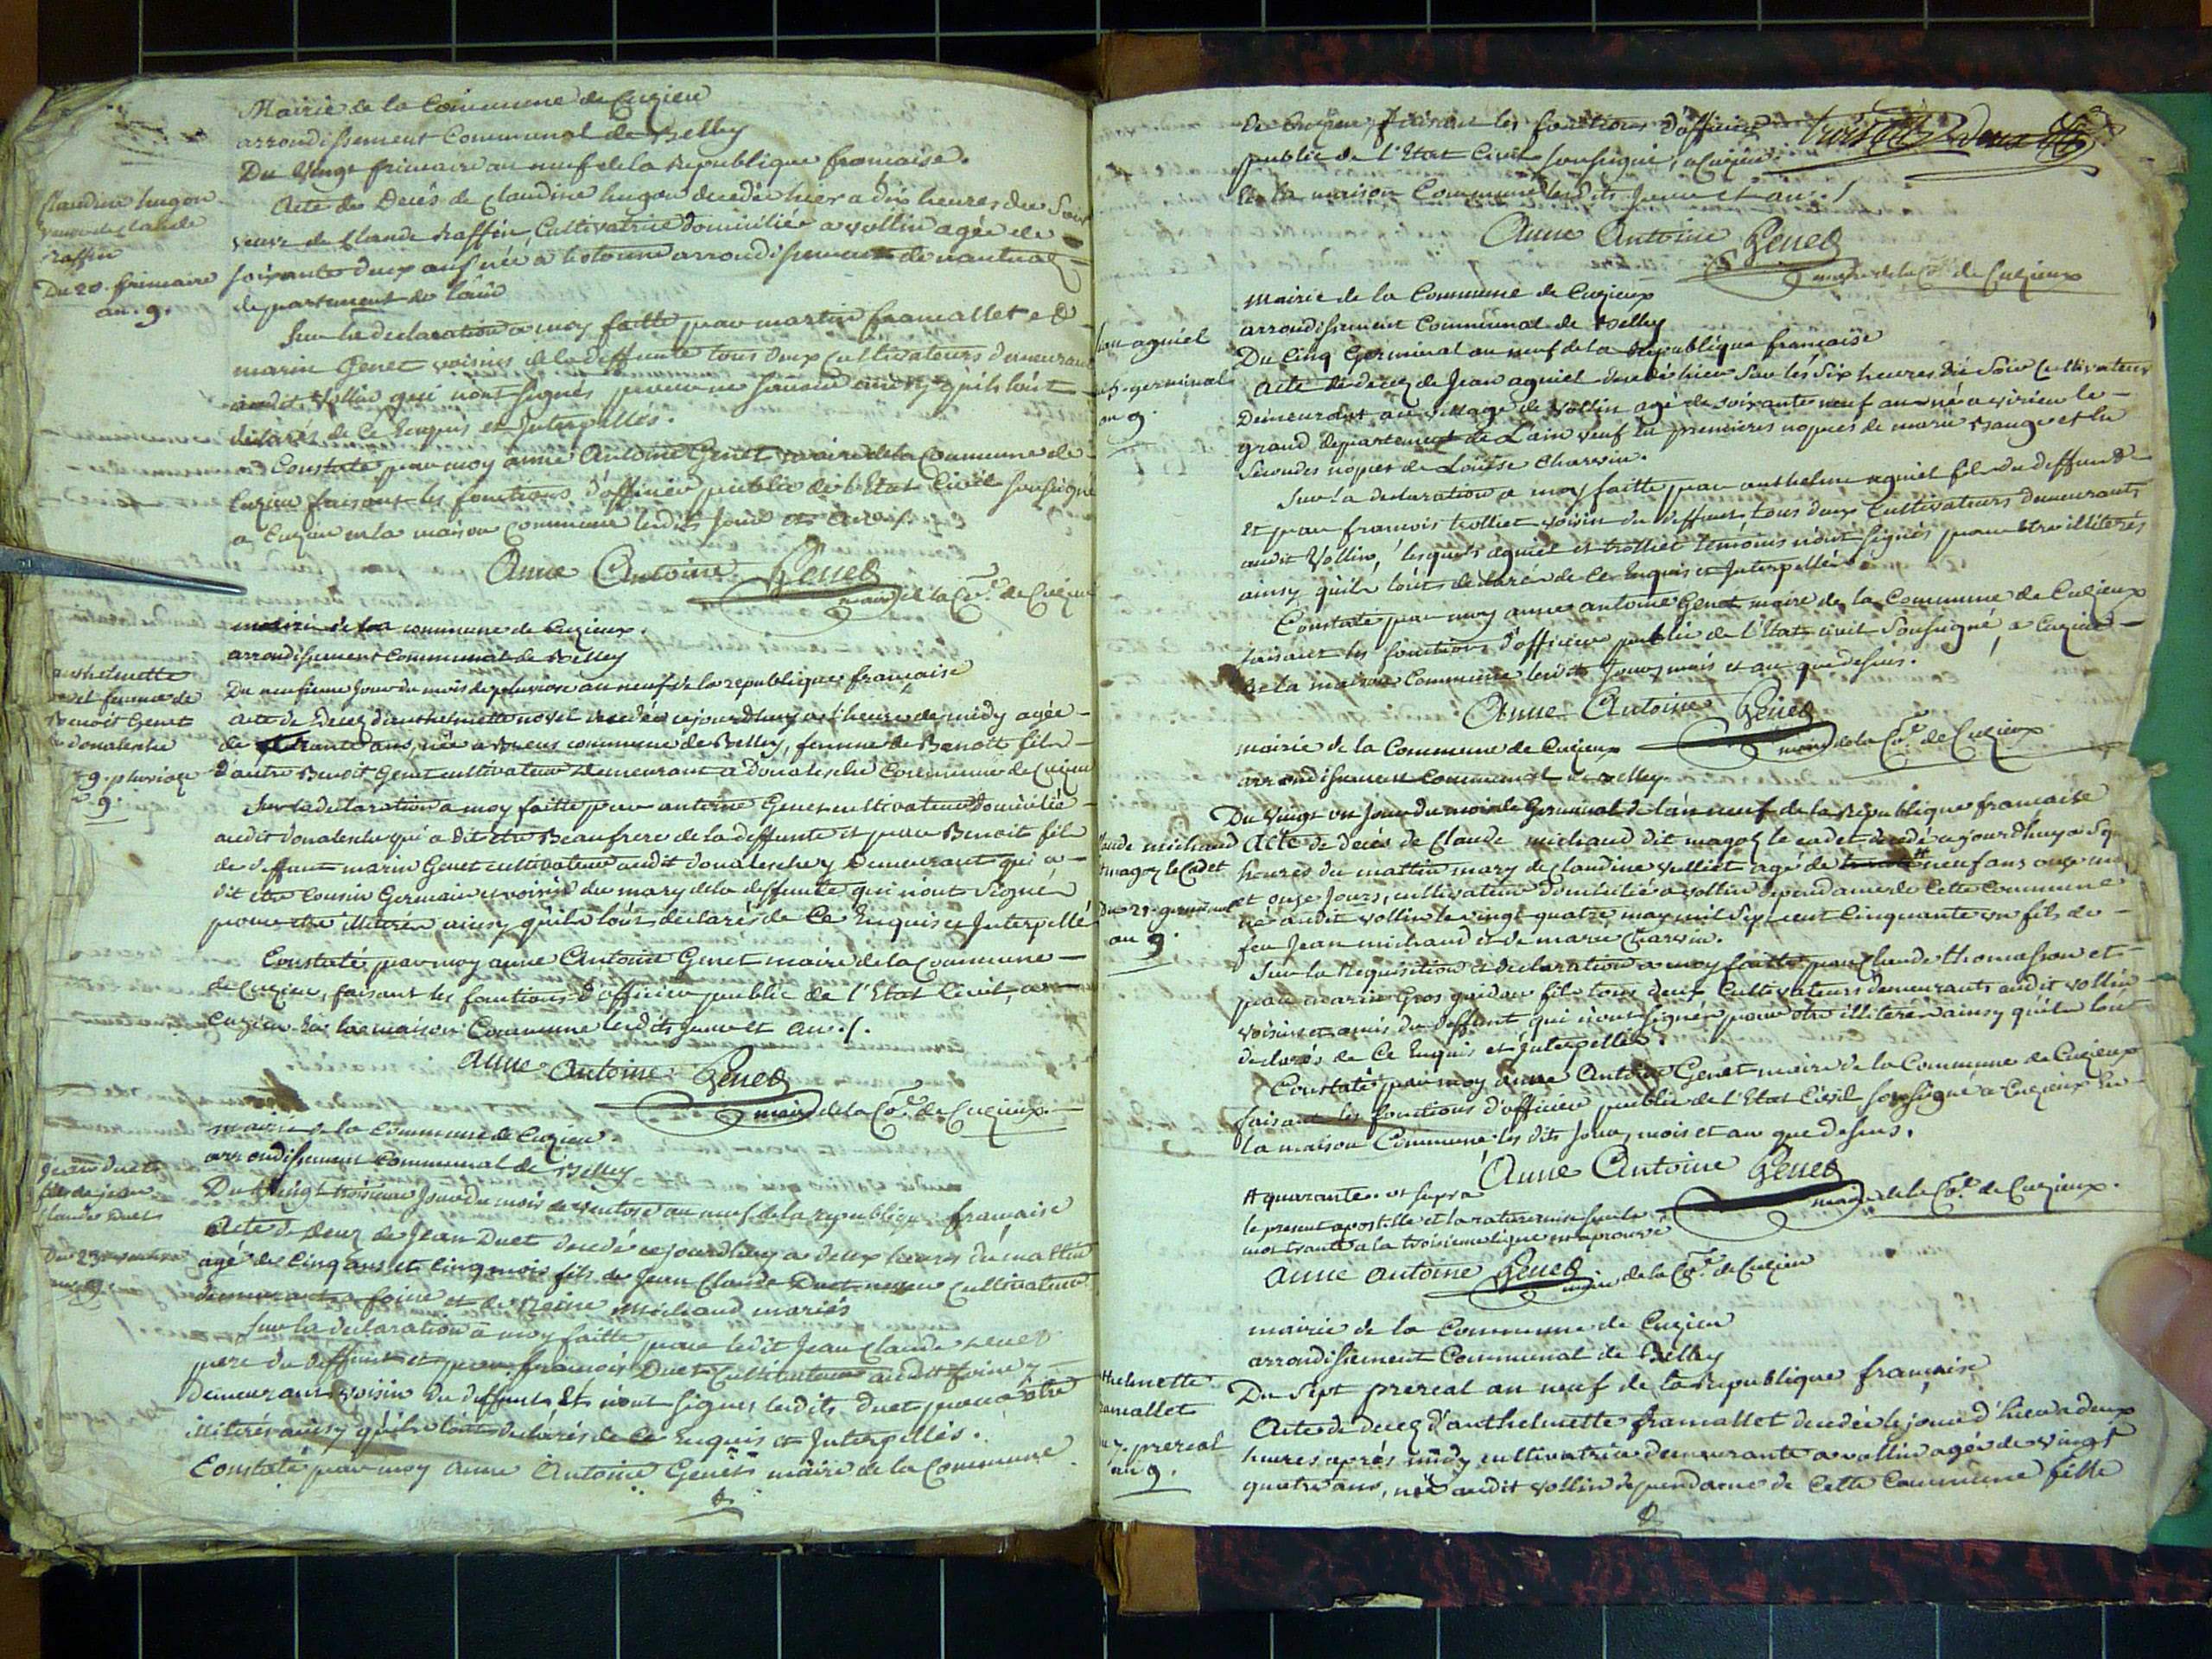 Mairie de la Commune de Cuzieu
arrondissement Communal de Belley
Du Vingt frimaire an neuf de la Republique francaise.
Claudine hugon
veuve de Claude
raffin
Du 20. frimaire
an. 9.
Acte de Decès de Claudine hugon decedée hier a dix heures du Soir
veuve de Claude Raffin, Cultivatrice domiciliée a vollin agée de
soixante deux ans née a arrondissement de nantua
departement de lain
Sur la declaration a moy faitte par martin framallet et
marin Genet voisins de la deffunte tous deux cultivateurs demeurant
audit Vollin qui n'ont signés pour ne savoir ainsy qu'ils l'ont
déclarés de Ce Enquis et Interpellés.
Constaté par moy anne Antoine Genet maire de la Commune de
Cuzieu faisant les fonctions d'officier public de l'Etat Civil soussigné
a Cuzieu en la maison Commune lesdits Jour et an./.
Anne Antoine Genet
maire de la Cne. de Cuzieu
mairie de la commune de Cuzieux.
arrondissement Communal de Belley
anthelmette
et femme de
Benoit Genet
de donalesche
9. pluviose
9.
Du neufieme Jour du mois de pluviose an neuf de la republique française
acte de Decez d'anthelmette novet decedée cejourdhuy a l'heure de midy agée
de ans, née a Bueus commune de Belley, femme de Benoit fils
d'autre Benoit Genet cultivateur demeurant a donalesche Commune de Cuzieu
Sur la declaration a moy faitte par antoine Genet cultivateur domicilié
audit donalesche qui a dit etre Beaufrere de la deffunte et par Benoit fils
de deffunt marin Genet cultivateur audit donalesche y Demeurant qui a
dit etre Cousin Germain et voisin du mary de la deffunte qui n'ont signés
pour etre illitéré ainsy qu'ils l'ont declarés de Ce Enquis et Interpellé
Constaté par moy anne Antoine Genet maire de la Commune
de Cuzieu, faisant les fonctions d'officier public de l'Etat Civil, a
Cuzieu En la maison Commune lesdits jour et an./.
Anne Antoine Genet
maire de la Cne. de Cuzieux.
mairie de la Commune de Cuzieu.
arrondissement Communal de Belley
Jean Duet
fils de jean
Claude Duet
Du 23 ventose
an 9.
Du Vingt troisieme Jour du mois de ventose an neuf de la republique française
Acte de Decez de Jean Duet decedé cejourdhuy a deux heures du mattin
agé de cinq ans et cinq mois fils de Jean Claude Duet neveu Cultivateur
demeurant a foine et de Reine Michaud mariés
Sur la declaration a moy faitte par ledit Jean Claude Duet
pere du deffunt et par françois Duet Cultivateur audit foine y
Demeurant voisin du deffunt Et n'ont signés lesdits duet pour être
illitérés ainsy qu'ils l'ont declarés de Ce Enquis et Interpellés.
Constaté par moy Anne Antoine Genet maire de la Commune
de Cuzieu, faisant les fonctions d'officier
public de l'Etat Civil soussigné, a Cuzieu
En la maison Commune lesdits Jour et an./
Anne Antoine Genet
maire de la Cne de Cuzieux
mairie de la Commune de Cuzieux
arrondissement Communal de Belley
Jean agniel
5. germinal
an 9.
Du Cinq Germinal an neuf de la Republique française
Acte de decez de Jean agniel decedé hier Sur les Six heures du Soir Cultivateur
Demeurant au village de vollin agé de soixante neuf an né a virieu le
grand departement de L'ain veuf En premieres nopces de marie Bauge et En
Secondes nopces de Louise Charvin.
Sur la declaration a moy faitte par anthelme agniel fils du deffunt
et par francois trolliet voisin du deffunt tous deux Cultivateurs demeurants
audit Vollin, lesquels agniel et trolliet temoins n'ont signés pour Etre illiterés
ainsy qu'ils l'ont declaré de Ce Enquis et Interpellés
Constaté par moy anne antoine Genet maire de la Commune de Cuzieux
faisant les fonctions d'officier public de l'Etat civil Soussigné, a Cuzieu
En la maison Commune lesdits Jour, mois et an que dessus.
Anne Antoine Genet
maire de la Cne de Cuzieux
mairie de la Commune de Cuzieux
arrondissement Communal de Belley.
Claude michaud
dit magoz le Cadet
Du 21. germinal
an 9.
Du Vingt un Jour du mois de Germinal de l'an neuf de la Republique francaise
Acte de decés de Claude michaud dit magoz le cadet decedé cejourdhuy a Sept
heures du mattin mary de Claudine vulliet agé de neuf ans onze mois
et onze Jours, cultivateur domicilié a vollin dependance de Cette Commune
né audit vollin le vingt quatre may mil Sept cent Cinquante un fils de
feu Jean michaud et de marie Charvin.
Sur la Requisition et declaration a moy faitte par Claude thomasson et
par marin Gros fils tous deux Cultivateurs demeurants audit vollin
voisins et amis du deffunt qui n'ont signés pour etre illiterés ainsy qu'ils l'ont
declarés de Ce Enquis et Interpellés.
Constaté par moy Anne Antoine Genet maire de la Commune de Cuzieux
faisant les fonctions d'officier public de l'Etat Civil soussigné a Cuzieux En
la maison Commune les dits Jour, mois et an que dessus.
Anne Antoine Genet
maire de la Cne. de Cuzieux.
# quarante. ut supra
le present apostille et la rature mise sur le
mot trante a la troisieme ligne est aprouvé
Anne Antoine Genet
maire de la Cne. de Cuzieu
mairie de la Commune de Cuzieu
arrondissement Communal de Belley
framallet
7. prereal
an 9.
Du Sept prereal an neuf de la Republique française
Acte de decez d'anthelmette framallet decedée le jour d'hier a deux
heures aprés midy cultivatrice demeurante a vollin agée de vingt
quatre ans, née audit vollin dependance de Cette Commune fille